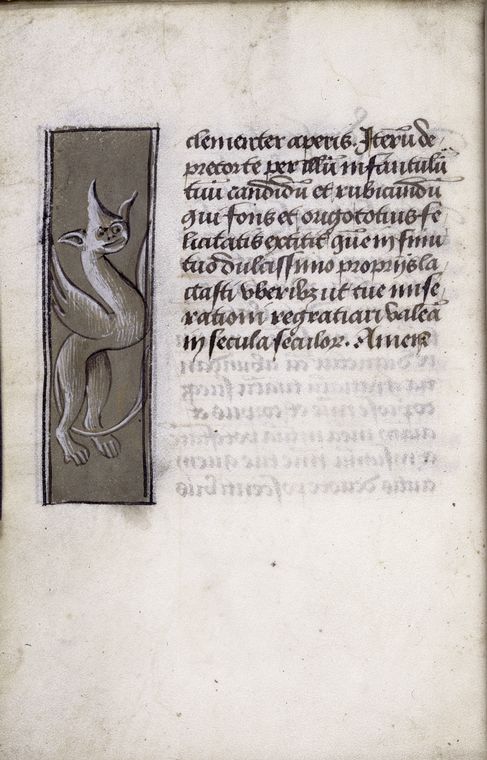 clementer aperis. Iterū de
precor te per illū infantulū
tuū candidū et rubicūdū
qui fons et origo totius fe
licitatis extitit quē in sinu
tuo dulcissimo proprijs la
ctasti vberibꝫ ut tue mise
rationi regratiari valeā
in secula seculoꝝ. Amen